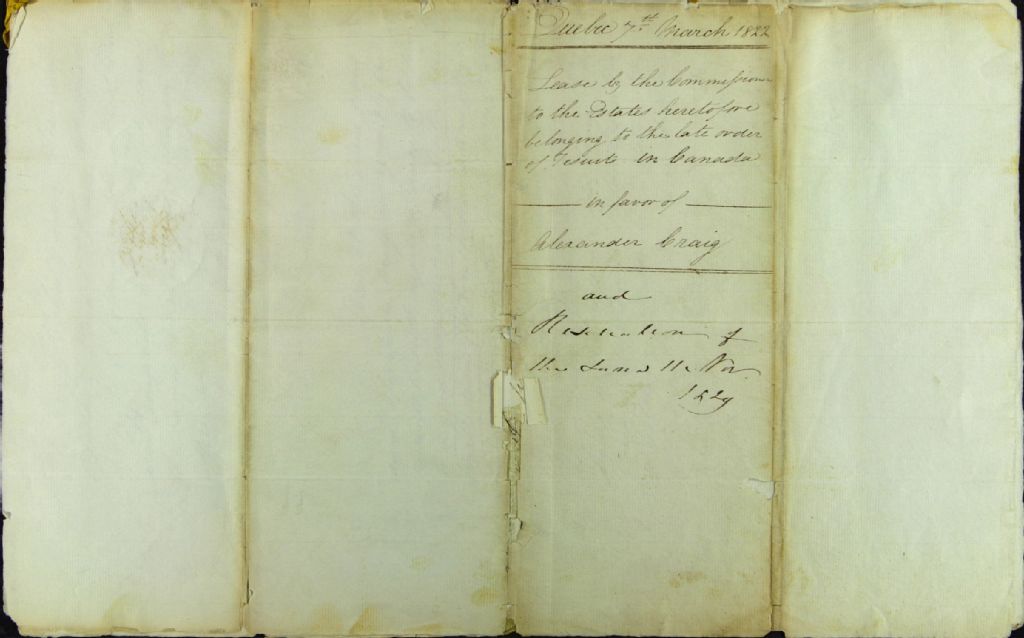 Quebec 7th March 1822
Lease by the Commissioners
to the Estates heretofore
belonging to the late order
of Jesuits in Canada
in favor of
Alexander Craig
and
of
the Same 11 Nov.
1829